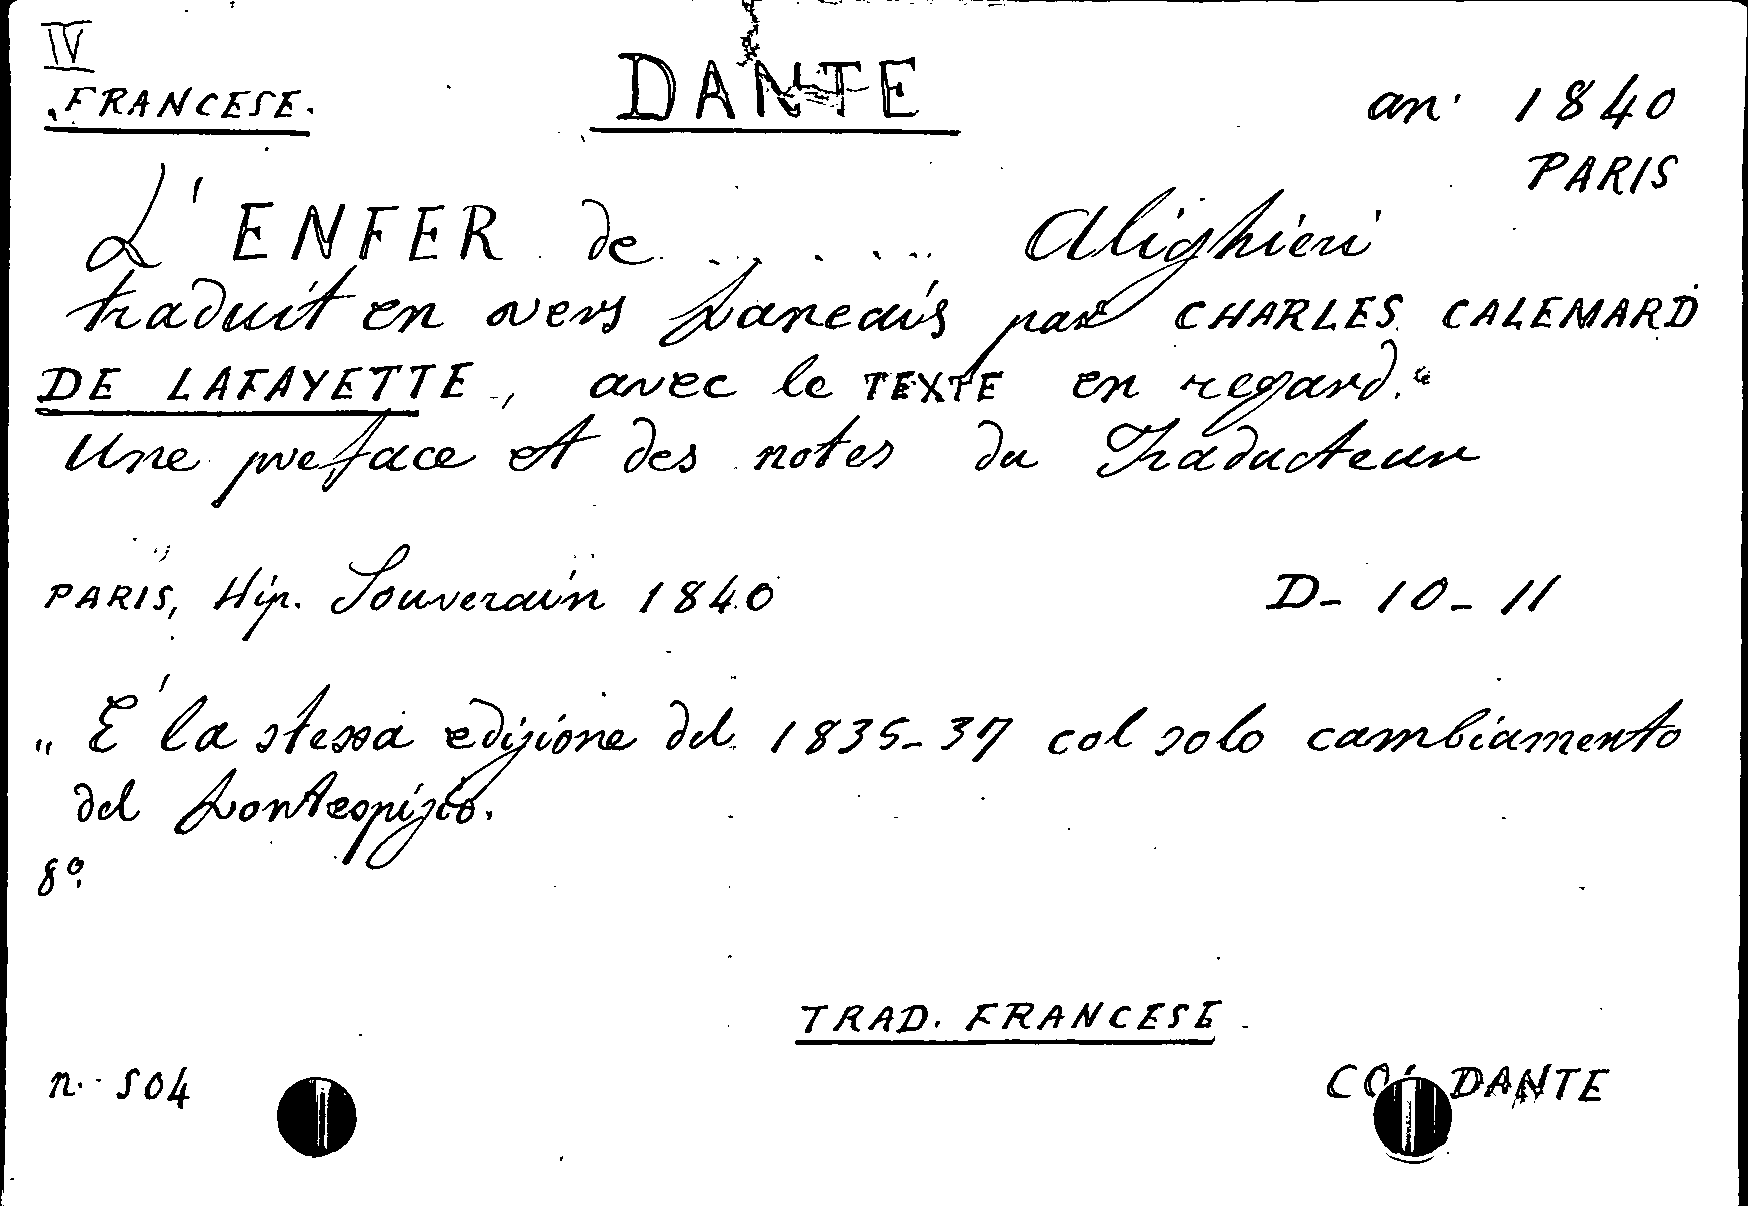 IV
FRANCESE. DANTE an. 1840
PARIS
L'ENFER de ...... Alighieri
traduit en vers francais par CHARLES CALEMARD
DE LAFAYETTE, avec le TEXTE en regard."
Une preface et des notes du Traducteur
PARIS, Hip. Souverain 1840 D-10-11
"E' la stessa edizione del 1835-37 col solo cambiamento
del frontespizio.
8°.
TRAD. FRANCESE
n. 504 DANTE